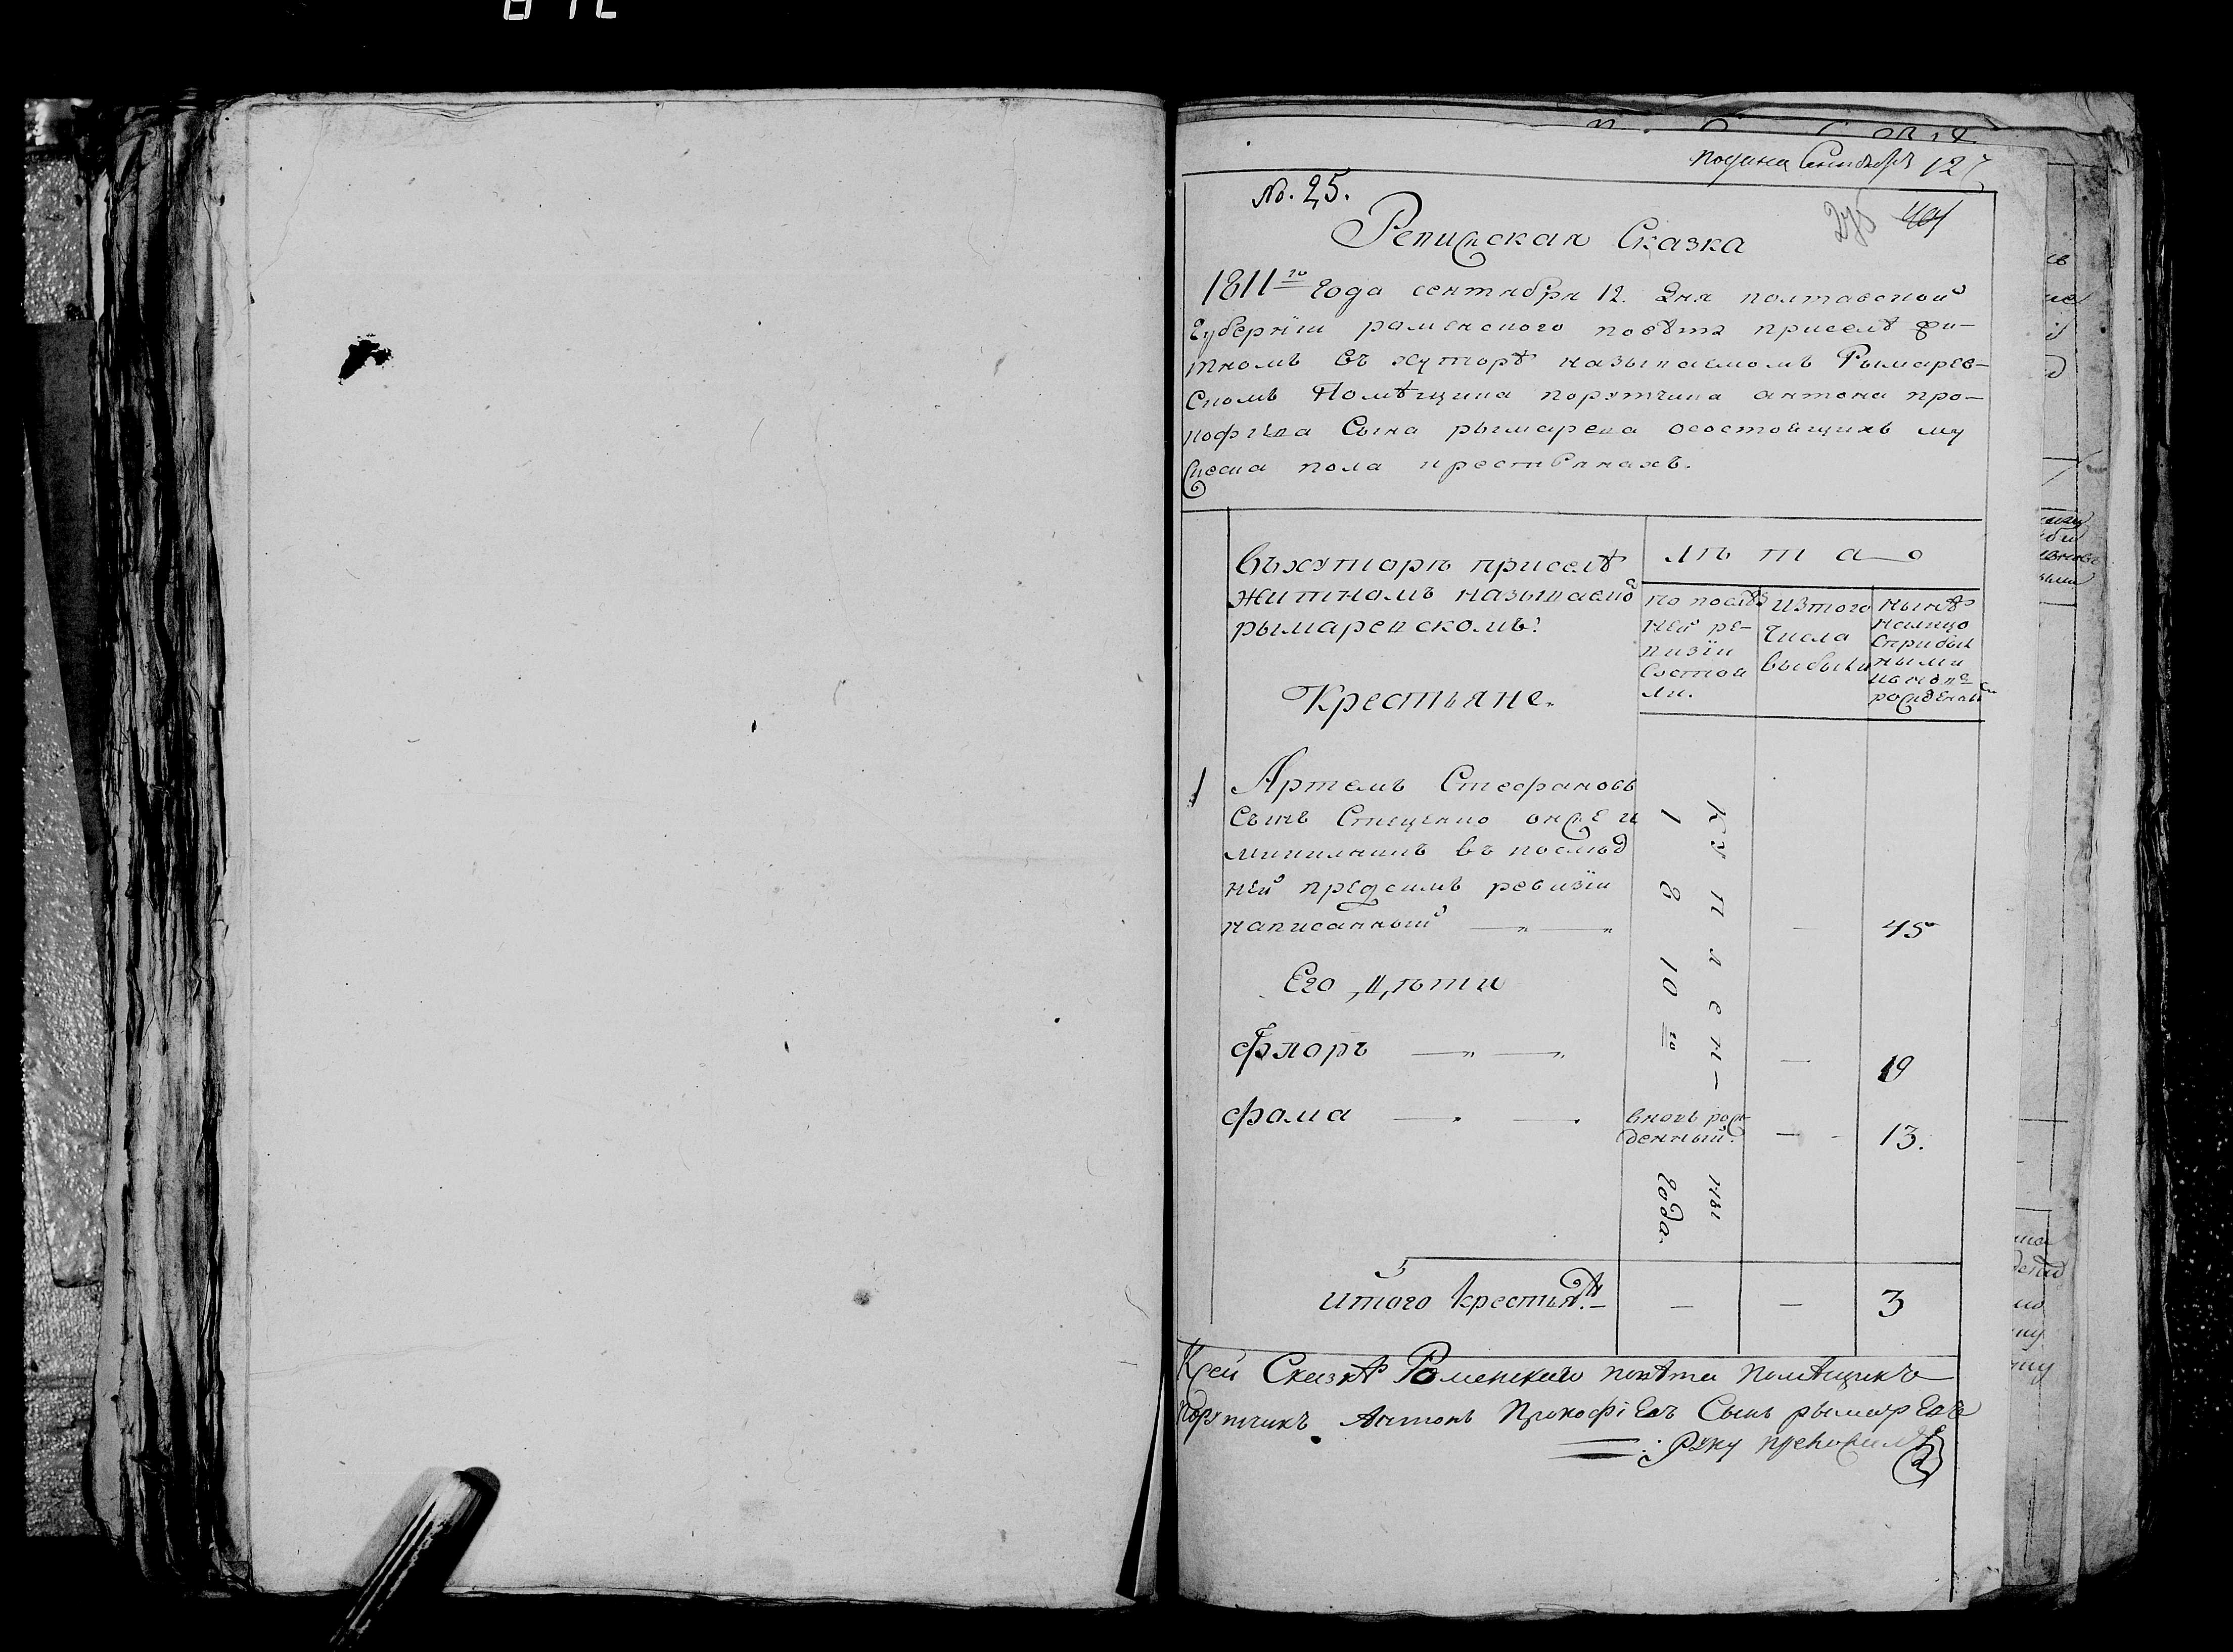 подана Сентября 127
№. 25.
Ревижская Сказка
1811го года сентября 12. дня полтавской
губернии роменского повѣта приселѣ жи-
тномъ въ хуторѣ называемомъ Рымарев-
скомъ Помѣщика порутчика антона про-
кофиева Сына рымарева осостоящихъ му
жеска пола крестьянахъ.
Въхуторѣ приселѣ
житномъ называемо
рымаревскомъ:
Крестьяне.
лѣта
по послѣд
ней ре-
визіи
состоя
ли.
изтого
числа
выбыли
нынѣ
налицо
сприбыл
ными
рожденны
1 Артемъ Стефановъ
Сынъ Стеценко онже и
въ послѣд
ней предсимъ ревизіи
написанный — — 45
Его дѣти
Фларъ — — — 19
Фома — — вновь рож
денный. — - 13.
куплен-
ны
1810го
года
Итого крестьянъ — — — 3
Ксей Сказкѣ Роменского повѣта помѣщикъ
порутчикъ Антонъ Прокофіевъ Сынъ рымаревъ
руку приложилъ